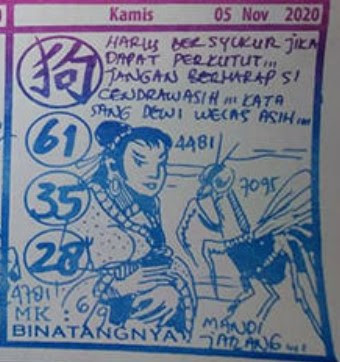 Kamis 05 Nov 2020
HARUS BERSYUKUR JIKA
DAPAT PERKUTUT...
JANGAN BERHARAP SI
CENDRAWASIH... KATA
SANG DEWI WELAS ASIH...
狗
61
35
28
4481
7095
4781
MK : 6/9
BINATANGNYA
MANDI
JALANG...